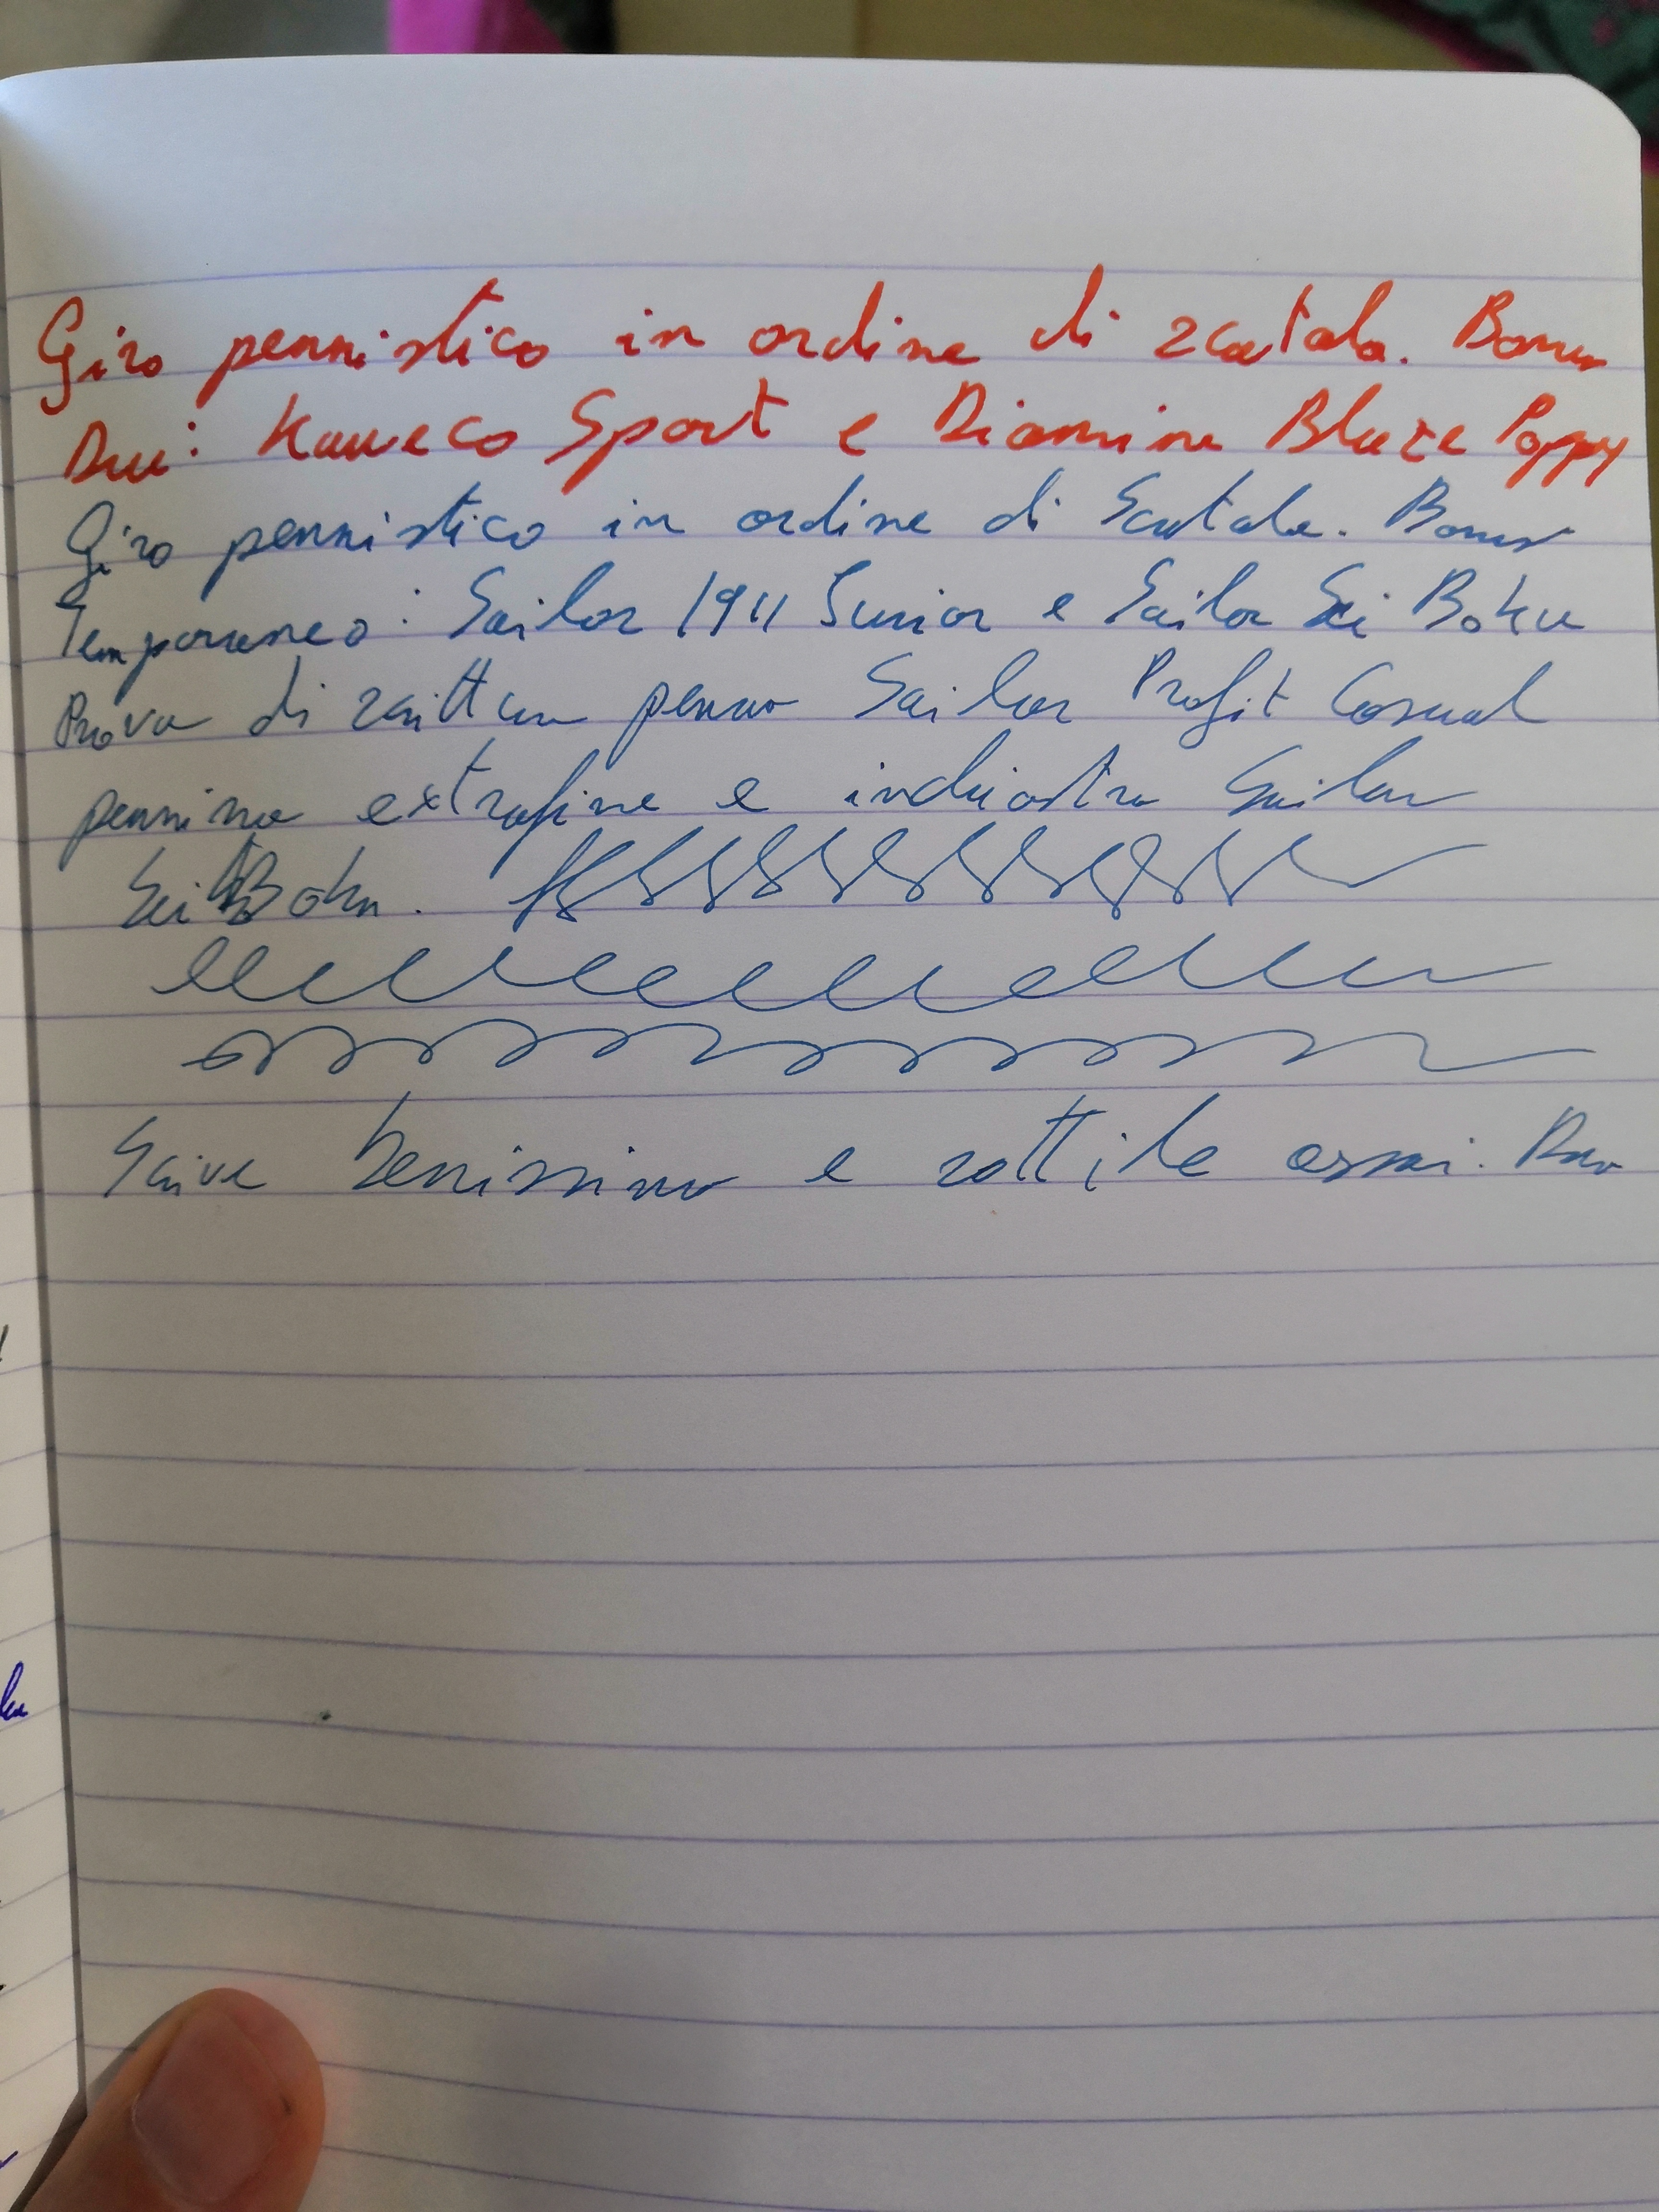 Giro pennistico in ordine di scatola. Bonus
Due: Kaweco Sport e Diamine Blaze Poppy
Giro pennistico in ordine di Scatola. Bonus
Temporaneo: Sailor 1911 Junior e Sailor Sei Boku
Prova di scrittura penna Sailor Profit Casual
pennino extrafine e inchiostro Sailor
Sei Boku.
Scrive benissimo e sottile assai.